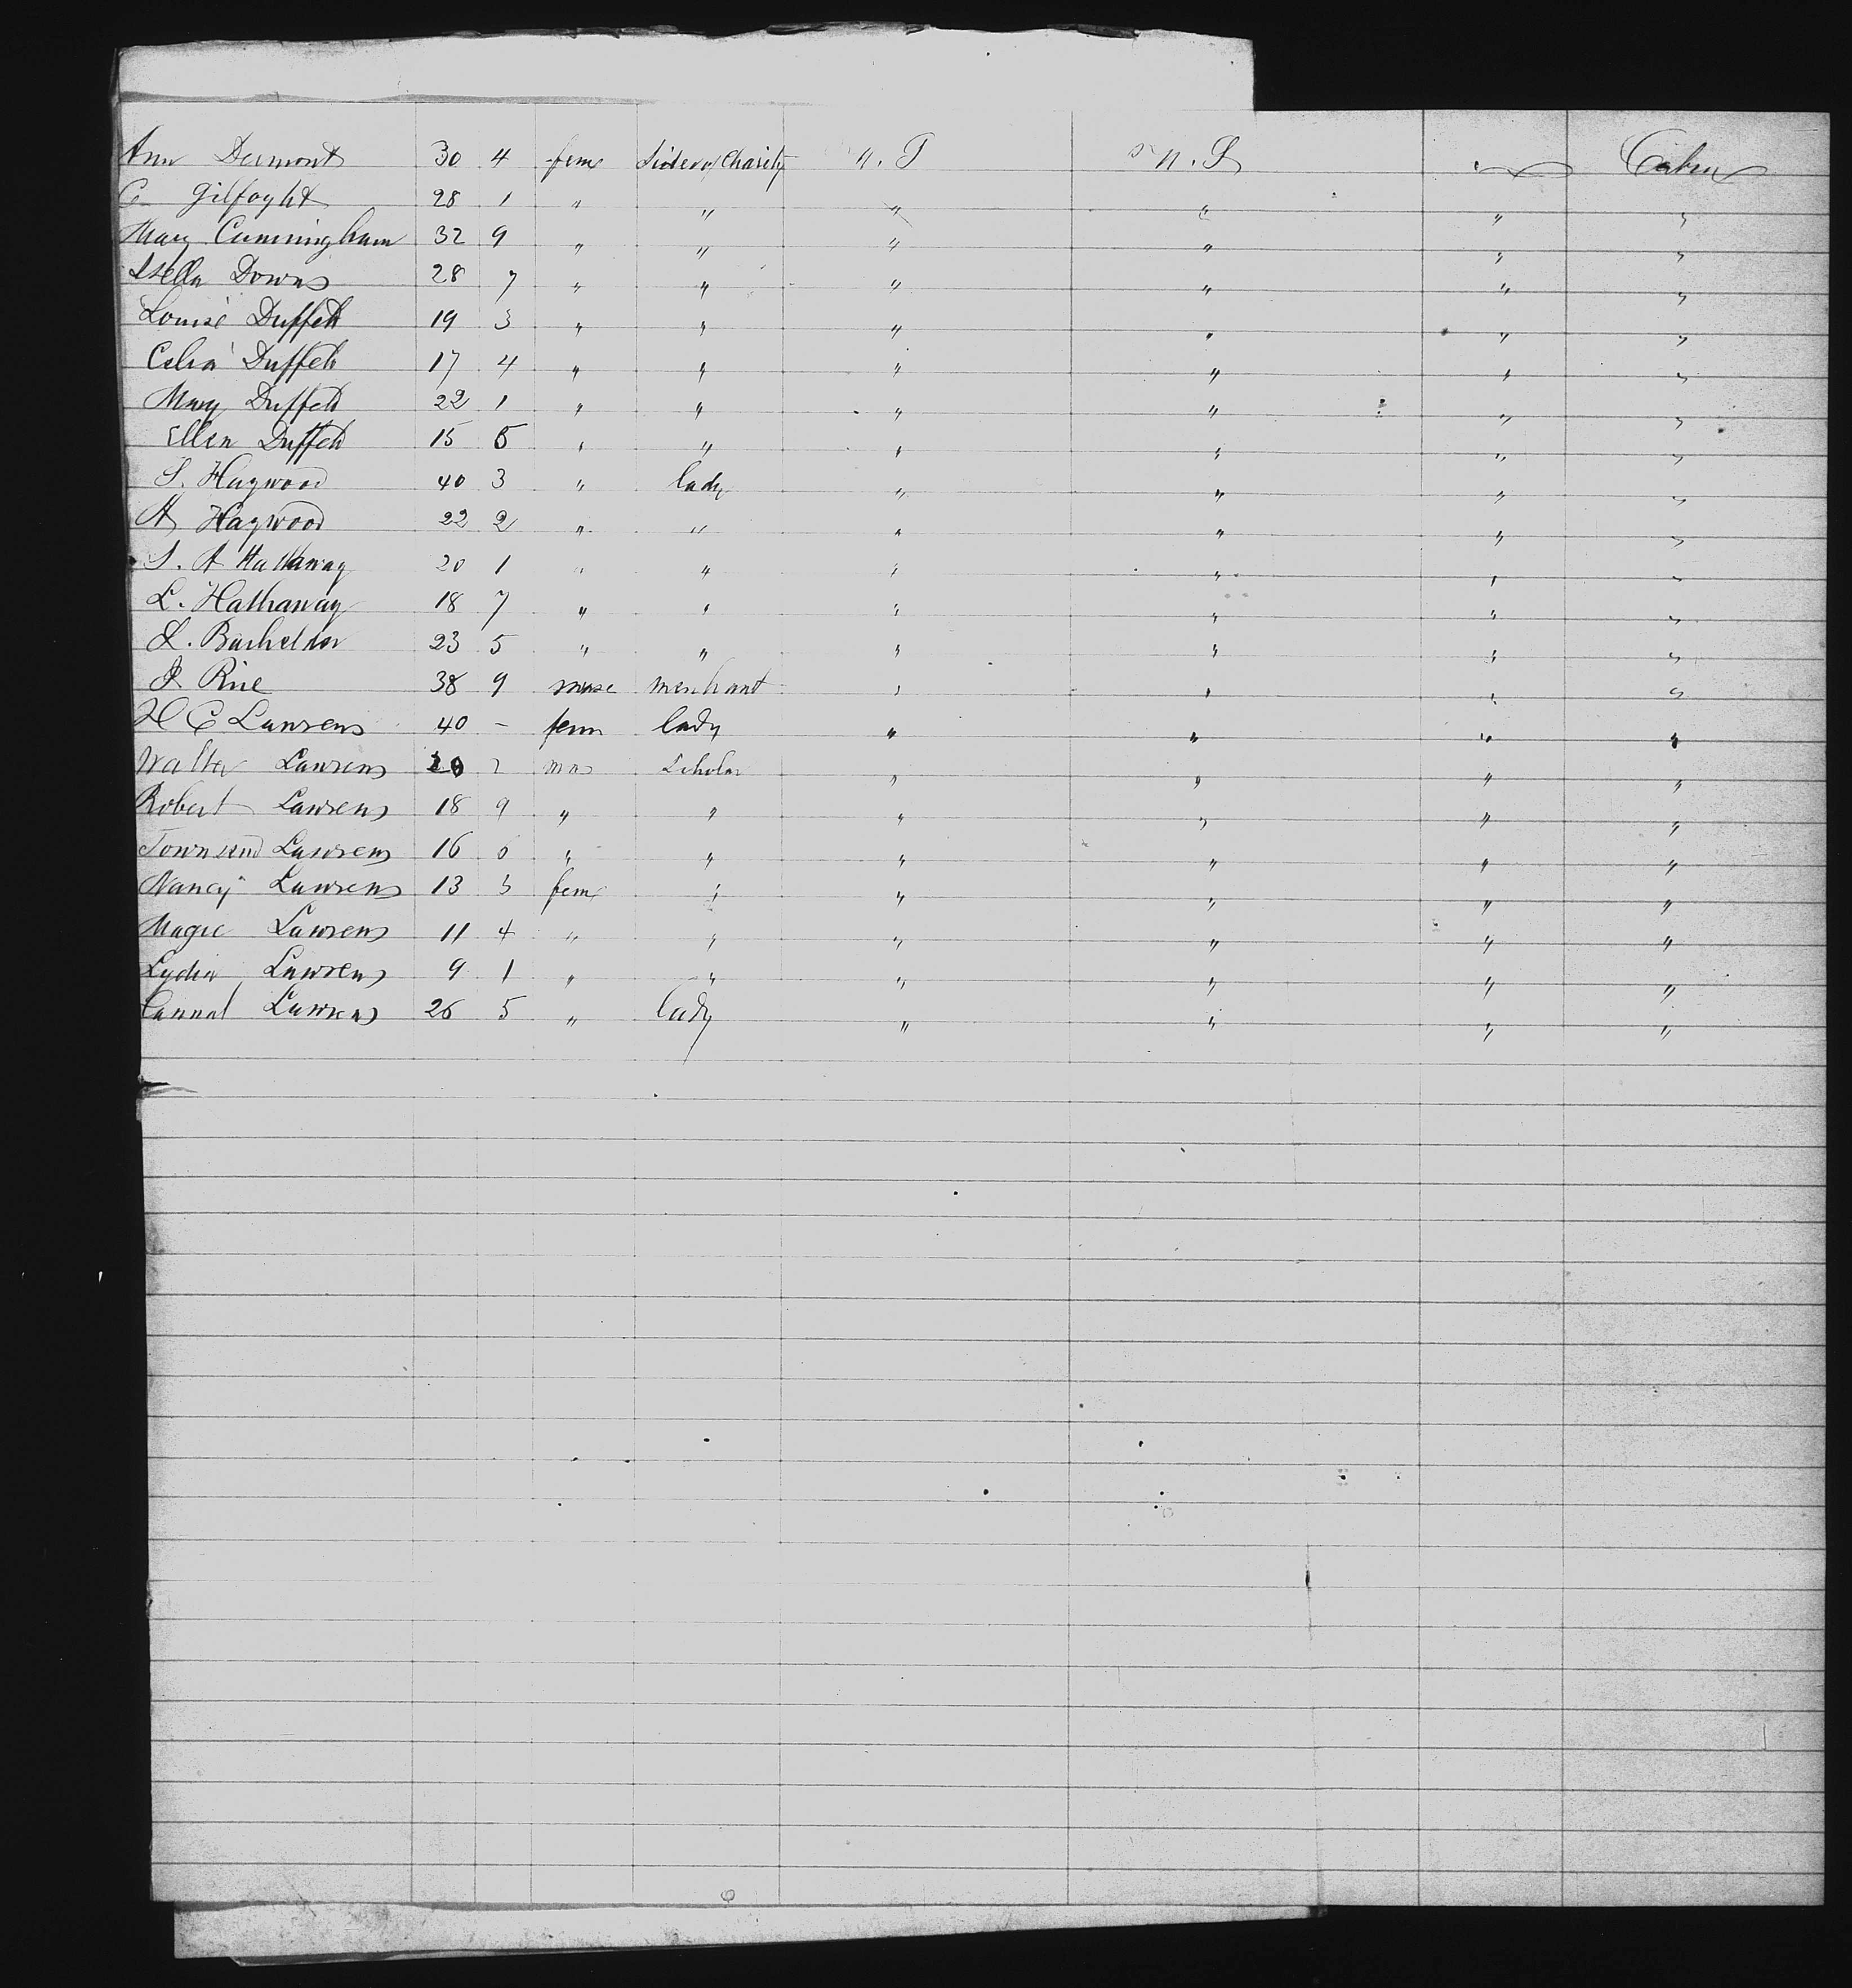 Ann Dermont 30 4 fem Sister of Charity U. S U. S " Cabin
C Gilfoyht 28 1 " " " " " "
Mary Cunningham 32 9 " " " " " "
Stella Downs 28 7 " " " " " "
Louise Duffeth 19 3 " " " " " "
Celia Duffeth 17 4 " " " " " "
Mary Duffeth 22 1 " " " " " "
Ellen Duffeth 15 5 " " " " " "
S. Haywood 40 3 " lady " " " "
A Haywood 22 2 " " " " " "
S. A Hathaway 20 1 " " " " " "
L. Hathaway 18 7 " " " " " "
L. Bachelder 23 5 " " " " " "
J Rice 38 9 masc merchant " " " "
H C Lawrens 40 - fem lady " " " "
Walter Lawrens 20 2 mas Scholar " " " "
Robert Lawrens 18 9 " " " " " "
Townsend Lawrens 16 6 " " " " " "
Nancy Lawrens 13 3 fem " " " " "
Magie Lawrens 11 4 " " " " " "
Lydia Lawrens 9 1 " " " " " "
Lawrens 26 5 " lady " " " "